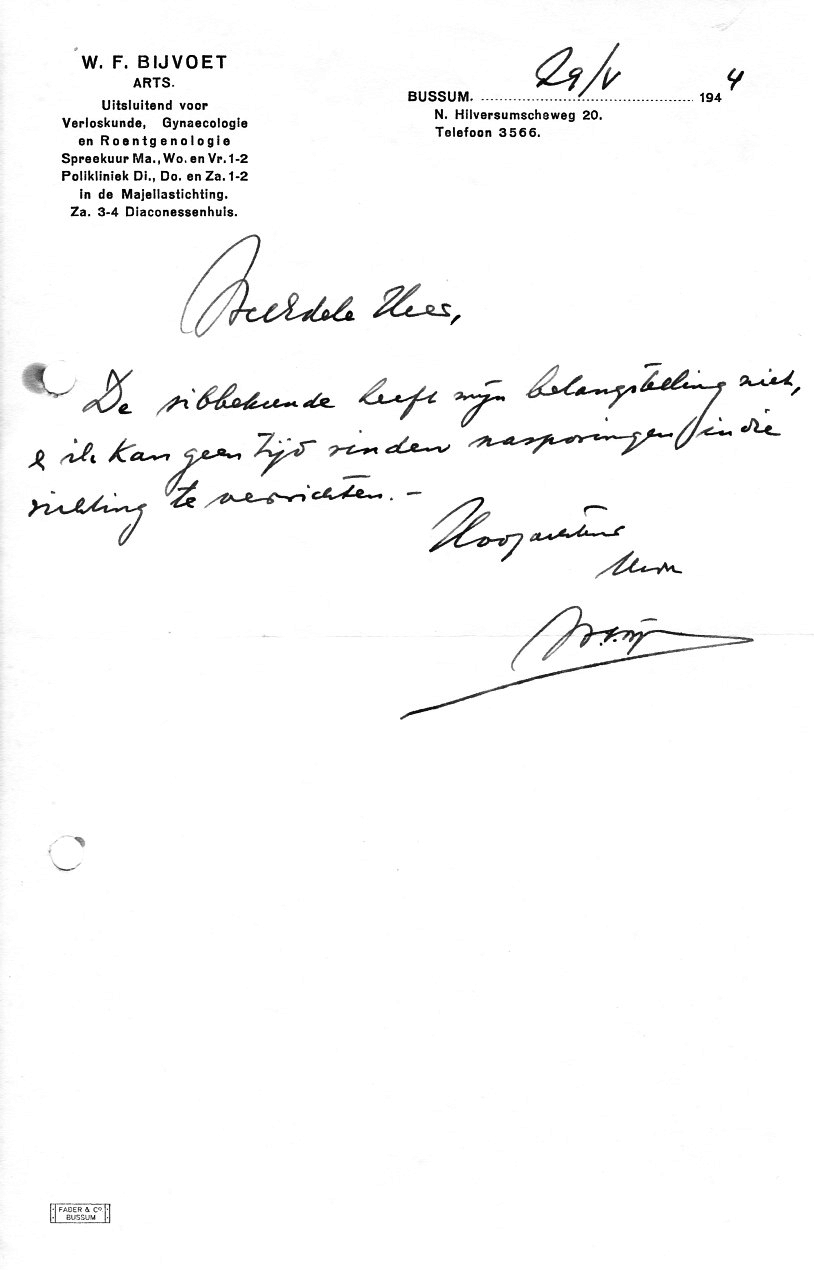 W. F. BIJVOET
ARTS.
Uitsluitend voor
Verloskunde, Gynaecologie
en Roentgenologie
Spreekuur Ma., Wo. en Vr. 1-2
Polikliniek Di., Do. en Za. 1-2
in de Majellastichting.
Za. 3-4 Diaconessenhuis.
BUSSUM. 29/V 1944
N. Hilversumscheweg 20.
Telefoon 3566.
WelEdele Heer,
De sibbekunde heeft mijn belangstelling niet,
& ik kan geen tijd vinden nasporingen in die
richting te verrichten. -
Hoogachtend
FADER & CO.
BUSSUM